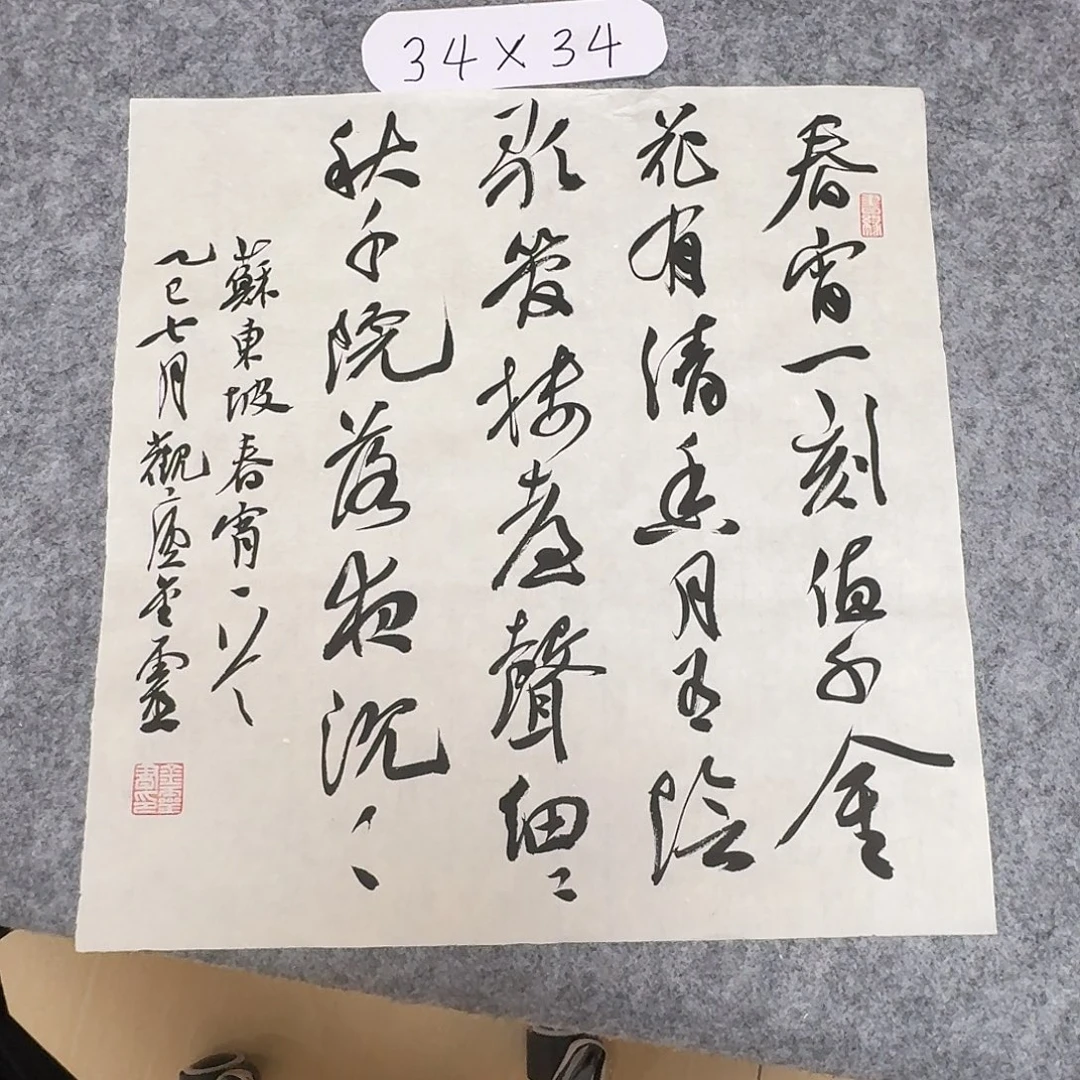 34×34
春宵一刻值千金
花有清香月有陰
歌管樓臺聲細〻
秋千院落夜沉〻
蘇東坡春宵一
乙巳七月觀